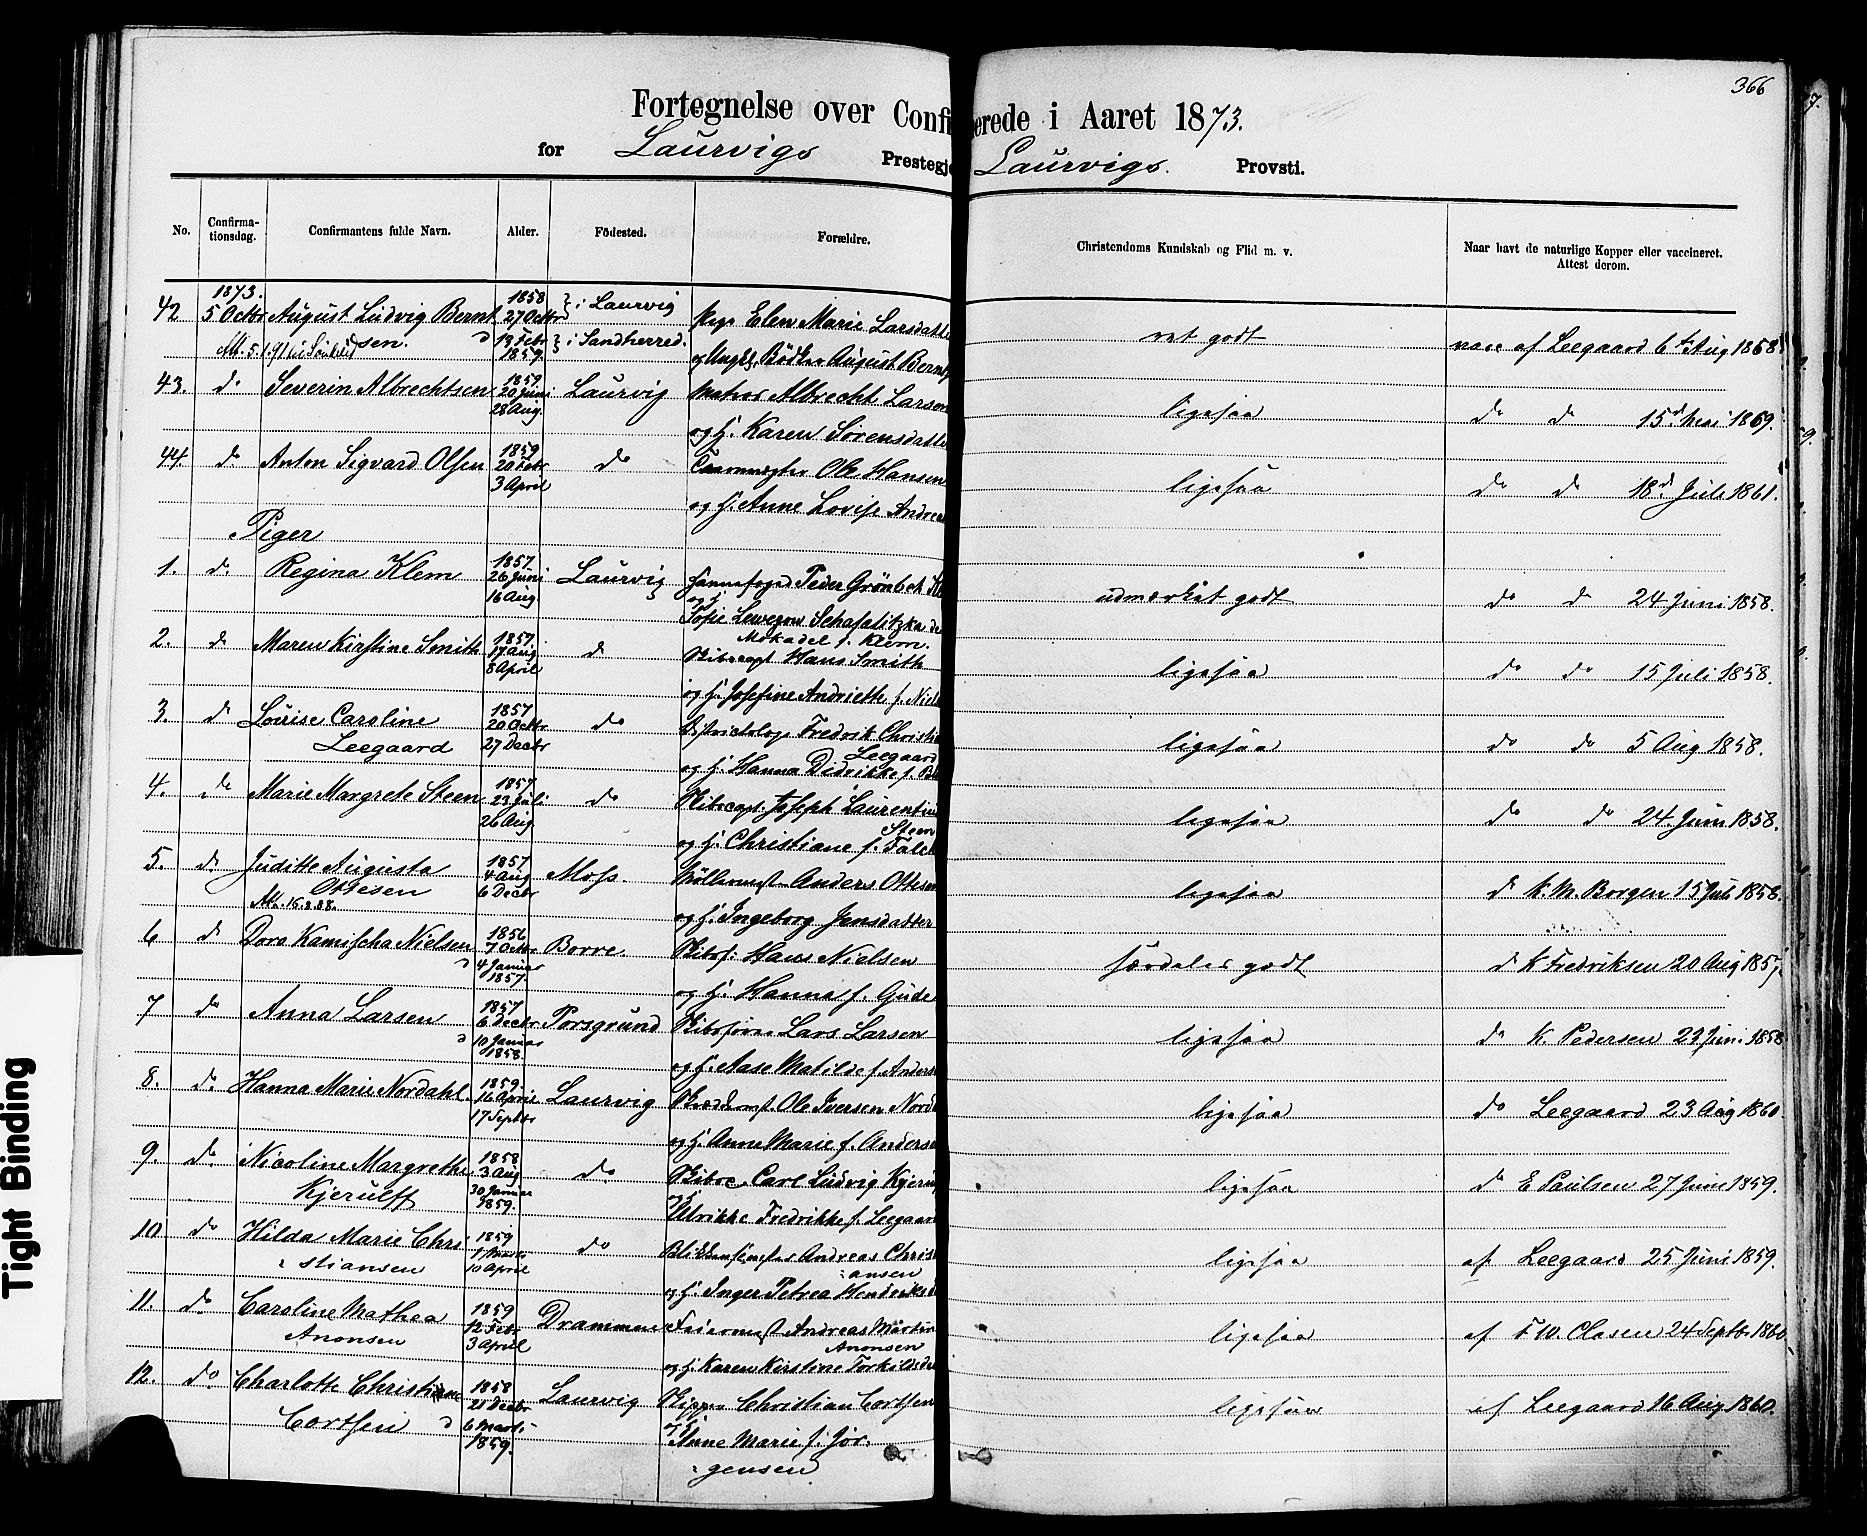 366
Fortegnelse over Confi erede i Aaret 1873.
for Laurvigs Prestegje Laurvigs. Provsti.
No. Confirma-tionsdag. Confirmantens fulde Navn. Alder. Födested. Forældre. Christendoms Kundskab og Flid m. v. Naar havt de naturlige Kopper eller vaccineret. Attest derom.
1873. 1858 i Laurvig
42 5 Octbr August Ludvig Bernt 27 Octbr Elen Marie Larsdatt ret godt vacc af Leegaard 6te Aug 1858
sen. d 13 Febr i Sandherred.
1859. og Bödker August Bernt
43. do Severin Albrechtsen 1859. 20 Juni 28 Aug. Laurvig Matros Albrecht Larsen ligesaa do do 15d Mai 1869.
og h. Karen Sörensdatt
44. do Anton Sigvard Olsen 1859 20 Febr 3 April do Ole Hansen ligesaa do do 18d Juli 1861.
og h. Anne Lovise Andrea
Piger
1. do Regina Klem 1857. 26 Juni 16 Aug. Laurvig Havnefoged Peder Grönbek Kl udmærket godt do do 24 Juni 1858.
og h.
Tofie Lewezow Schafalitzka de
Mokadel f. Klem.
2. do Maren Kirstine Smith 1857. 17 Aug 8 April do Skibscapt Hans Smith ligesaa do do 15 Juli 1858.
og h. Josefine Andriette f. Niel
3. do Louise Caroline 1857 20 Octbr 27 Decbr do Districtslæge Fredrik Christia ligesaa do do 5 Aug 1858.
Leegaard Leegaard
og h. Hanna Didrikke f. B
4. do Marie Margrete Steen 1857. 23 Juli 26 Aug. do Skibscapt. Joseph Laurentiu ligesaa do do 24 Juni 1858.
Steen
og h. Christiane f. Falck
5. do Juditte Augusta 1857 4 Aug 6 Decbr Moss. Möllermest Anders Ottesen ligesaa do K. M. Borgen 15 Juli 1858.
Ottesen
Att. 16.3.88. og h. Ingeborg Jensdatter
6 do Dora Kamischa Nielsen 1856 7 Octbr 4 Januar 1857. Borre. Skibsf. Hans Nielsen særdeles godt do K Fredriksen 20 Aug 1857
og h. Hanna f. Gude
7 do Anna Larsen 1857 6 Decbr 10 Januar 1858. Porsgrund Skibsförer Lars Larsen ligesaa do K. Pedersen 23 Juni 1858
og h. Aase Matilde f. Anders
8. do Hanna Marie Nordahl 1859. 16 April 17 Septbr Laurvig Skreddermst Ole Iversen Nord ligesaa do Leegaard 23 Aug 1860
og h. Anne Marie f. Anders
9. do Nicoline Margrethe 1858 3 Aug 30 Januar 1859. do Skibsc Carl Ludvig Kjeru ligesaa do E Paulsen 27 Juni 1859.
Kjerulff og h.
Ulrikke Fredrikke f. Leegaar
10 do Hilda Marie Chri- 1859 17 Marts 10 April do Blikkenslager Andreas Christ ligesaa af Leegaard 25 Juni 1859.
stiansen ansen
og h. Inger Petrea Hendriks
11. do Caroline Mathea 1859 12 Febr 3 April Drammen Feiermest Andreas Martin ligesaa af F W. Clasen 24 Septbr 1860
Anonsen Anonsen
og h. Karen Kirstine Torkildsda
12. do Charlotte Christiane 1858 21 Decbr 6 Marts 1859. Laurvig Skipper Christian Cortsen ligesaa af Leegaard 16 Aug 1860.
Cortsen d og h.
Anne Marie f. Jör-
gensen
Tight Binding